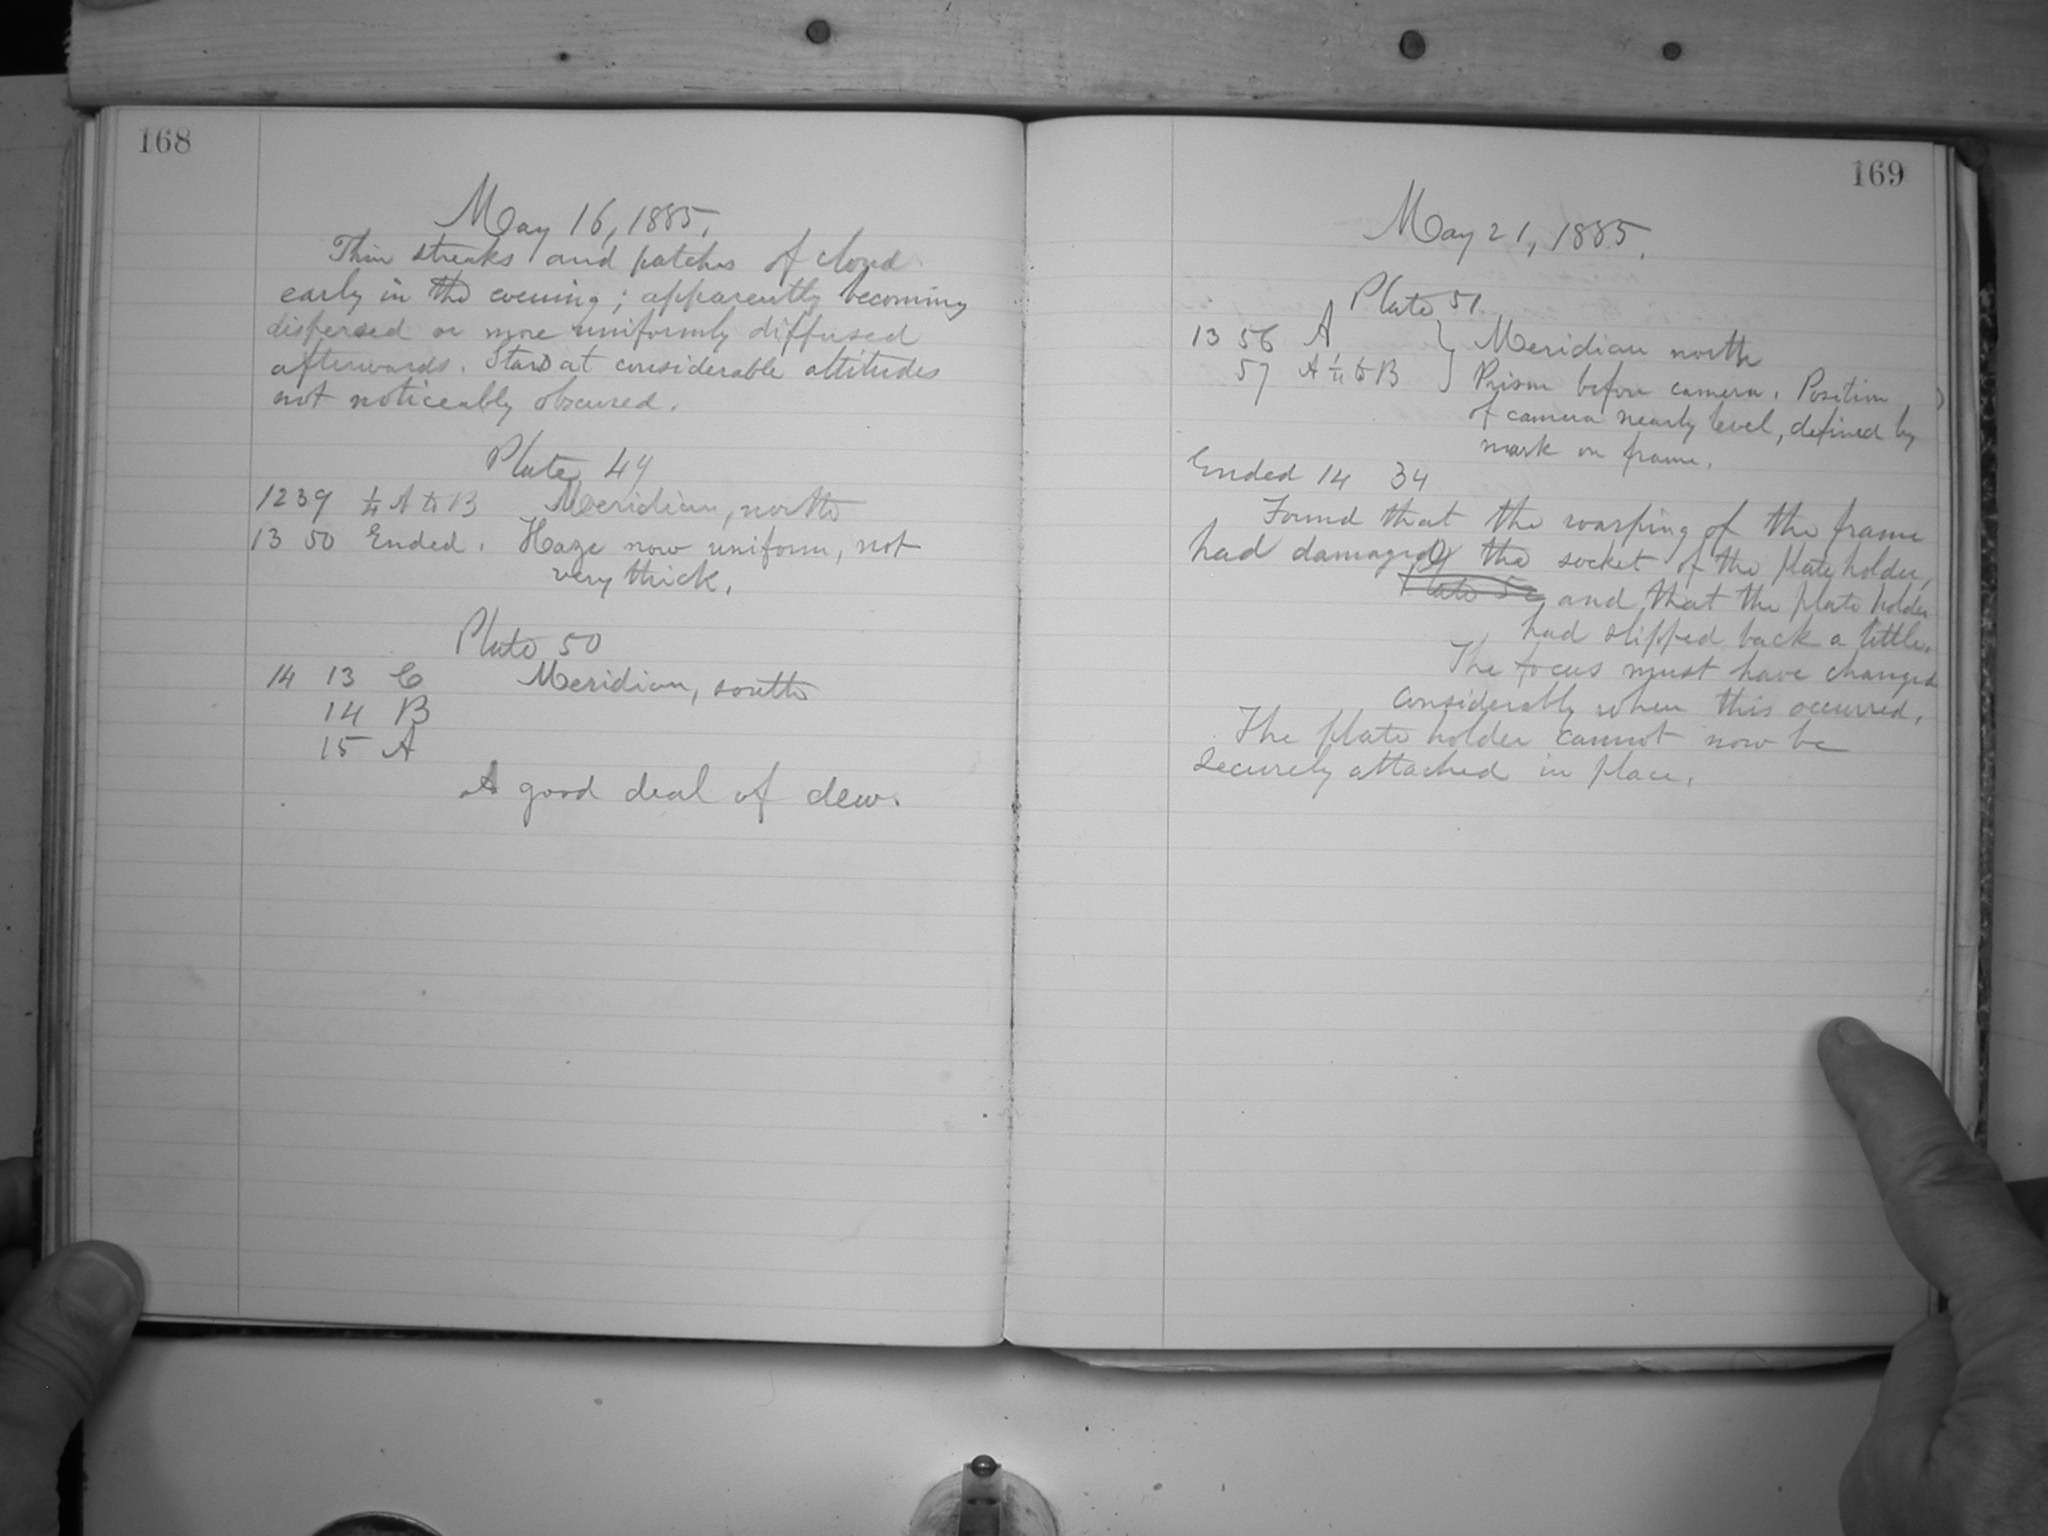 168
May 16, 1885.
Thin streaks and patches of cloud
early in the evening; apparently becoming
dispersed or more uniformly diffused
afterwards. Stars at considerable altitudes
not noticeably obscured.
Plate 49
12 39 ¼ A to B Meridian, north
13 50 Ended. Haze now uniform, not
very thick.
Plate 50
14 13 C Meridian, south
14 B
15 A
A good deal of dew.
169
May 21, 1885.
Plate 51
13 56 A } Meridian north
57 A ¼ to B } Prism before camera. Position
of camera nearly level, defined by
mark on frame.
Ended 14 34
Found that the warping of the frame
had damaged the socket of the plate holder,
Plate 52 and that the plate holder
had slipped back a little.
The focus must have changed
considerably when this occurred.
The plate holder cannot now be
securely attached in place.